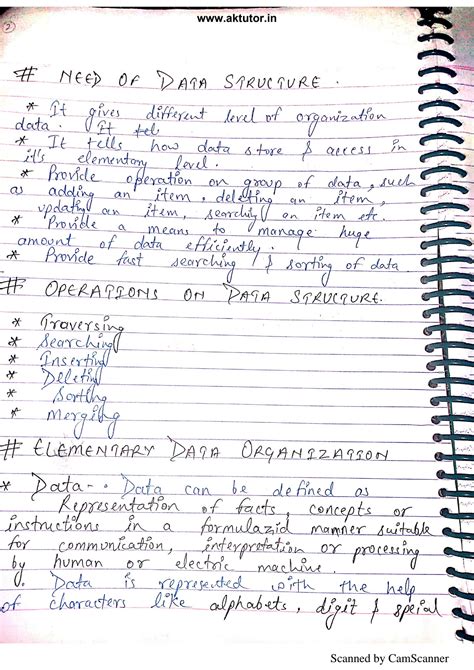 www.aktutor.in
2
# NEED OF DATA STRUCTURE.
* It gives different level of organization
data. It tel
* It tells how data store & access in
it's elementary level.
* Provide operation on group of data, such
as adding an item, deleting an item,
updating an item, searching an item etc.
* Provide a means to manage huge
amount of data efficiently.
* Provide fast searching & sorting of data
# OPERATIONS ON DATA STRUCTURE.
* Traversing
* Searching
* Inserting
* Deleting
* Sorting
* Merging
# ELEMENTARY DATA ORGANIZATION
* Data-. Data can be defined as
Representation of facts, concepts or
instructions in a formulazid manner suitable
for communication, interpretation or processing
by human or electric machine.
Data is represented with the help
of characters like alphabets, digit & speial
Scanned by CamScanner